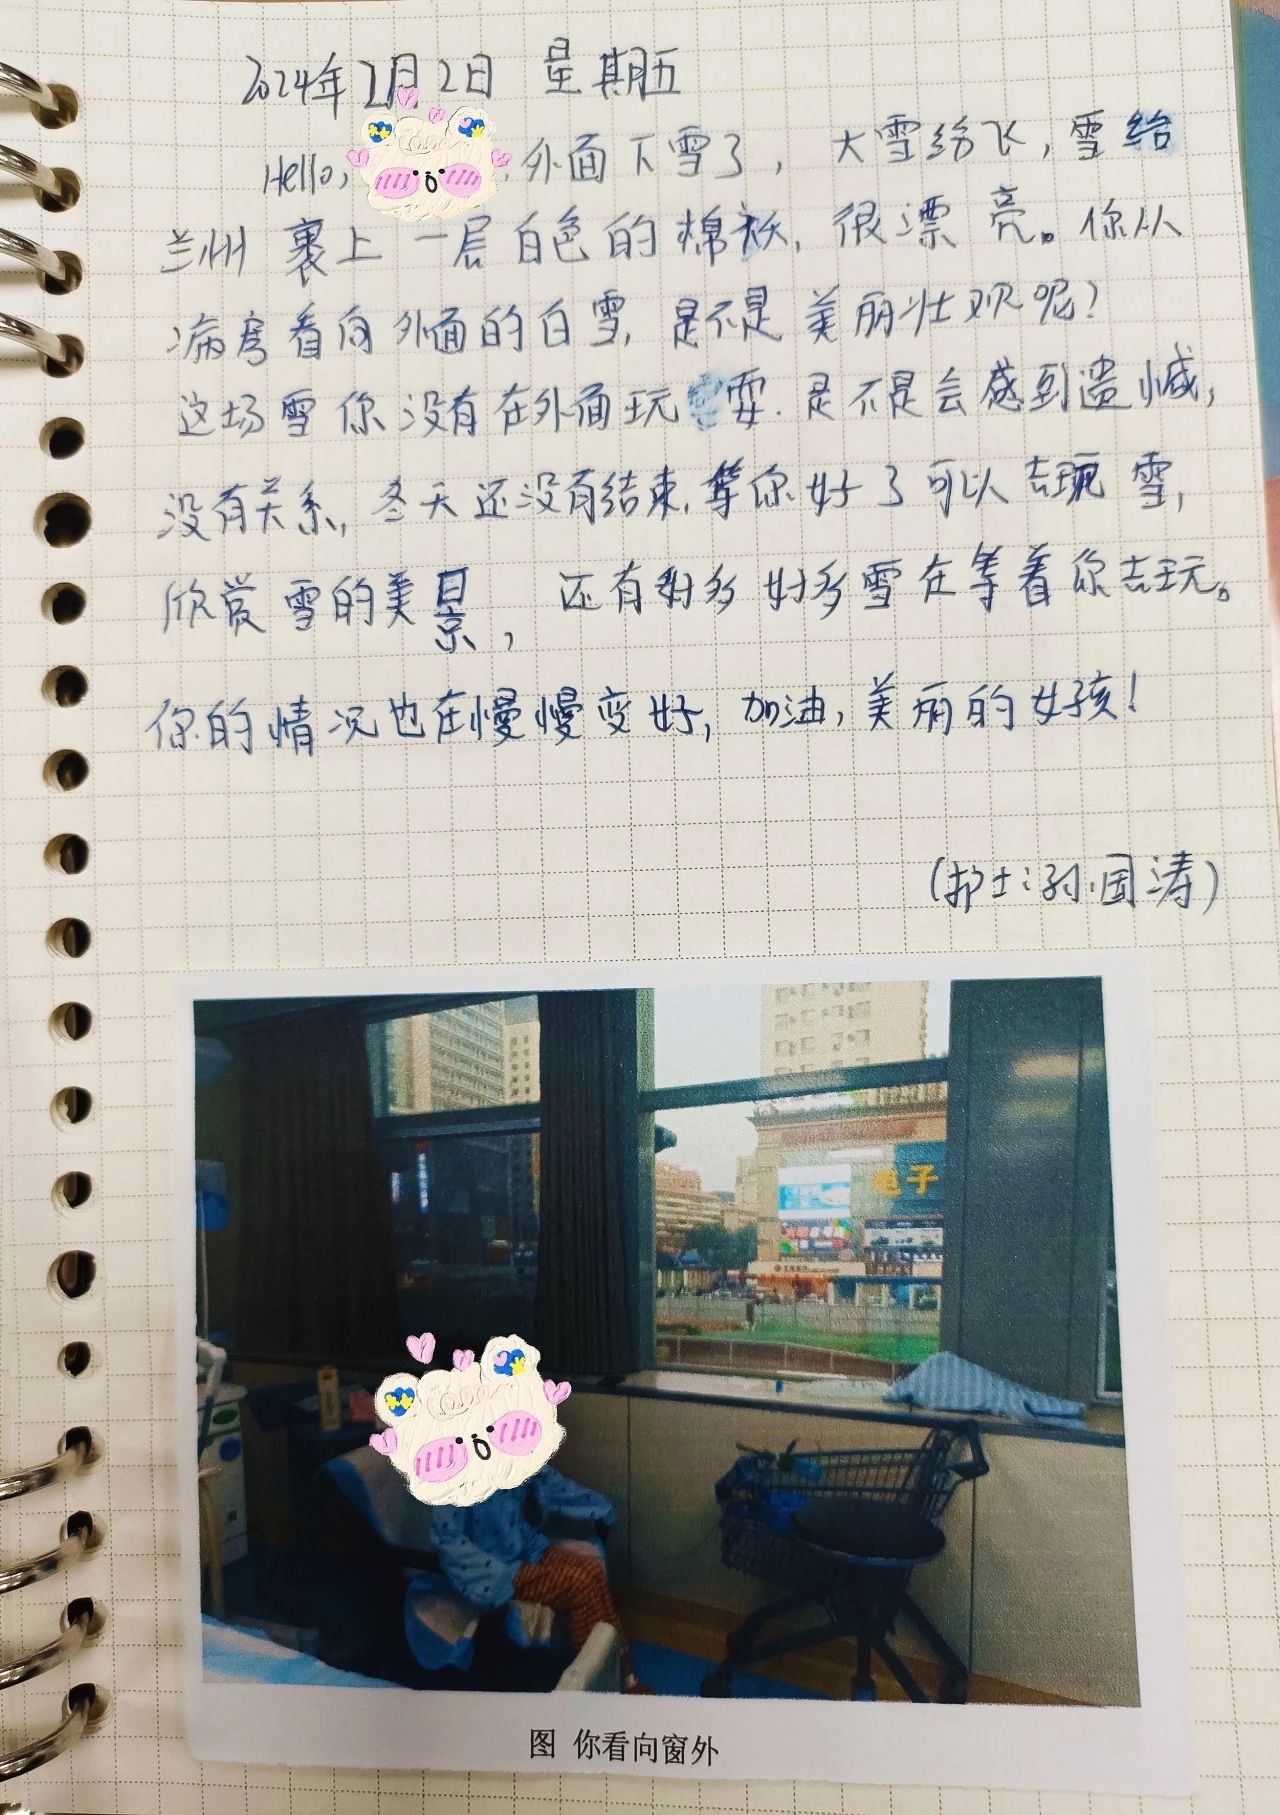 2024年2月2日 星期五
Hello, 外面下雪了，大雪纷飞，雪给
兰州裹上一层白色的棉袄，很漂亮。你从
病房看向外面的白雪，是不是美丽壮观呢？
这场雪你没有在外面玩耍.是不是会感到遗憾，
没有关系，冬天还没有结束，等你好了可以去玩雪，
欣赏雪的美景，还有好多好多雪在等着你去玩。
你的情况也在慢慢变好，加油，美丽的女孩！
（护士：孙国涛）
电子
图 你看向窗外